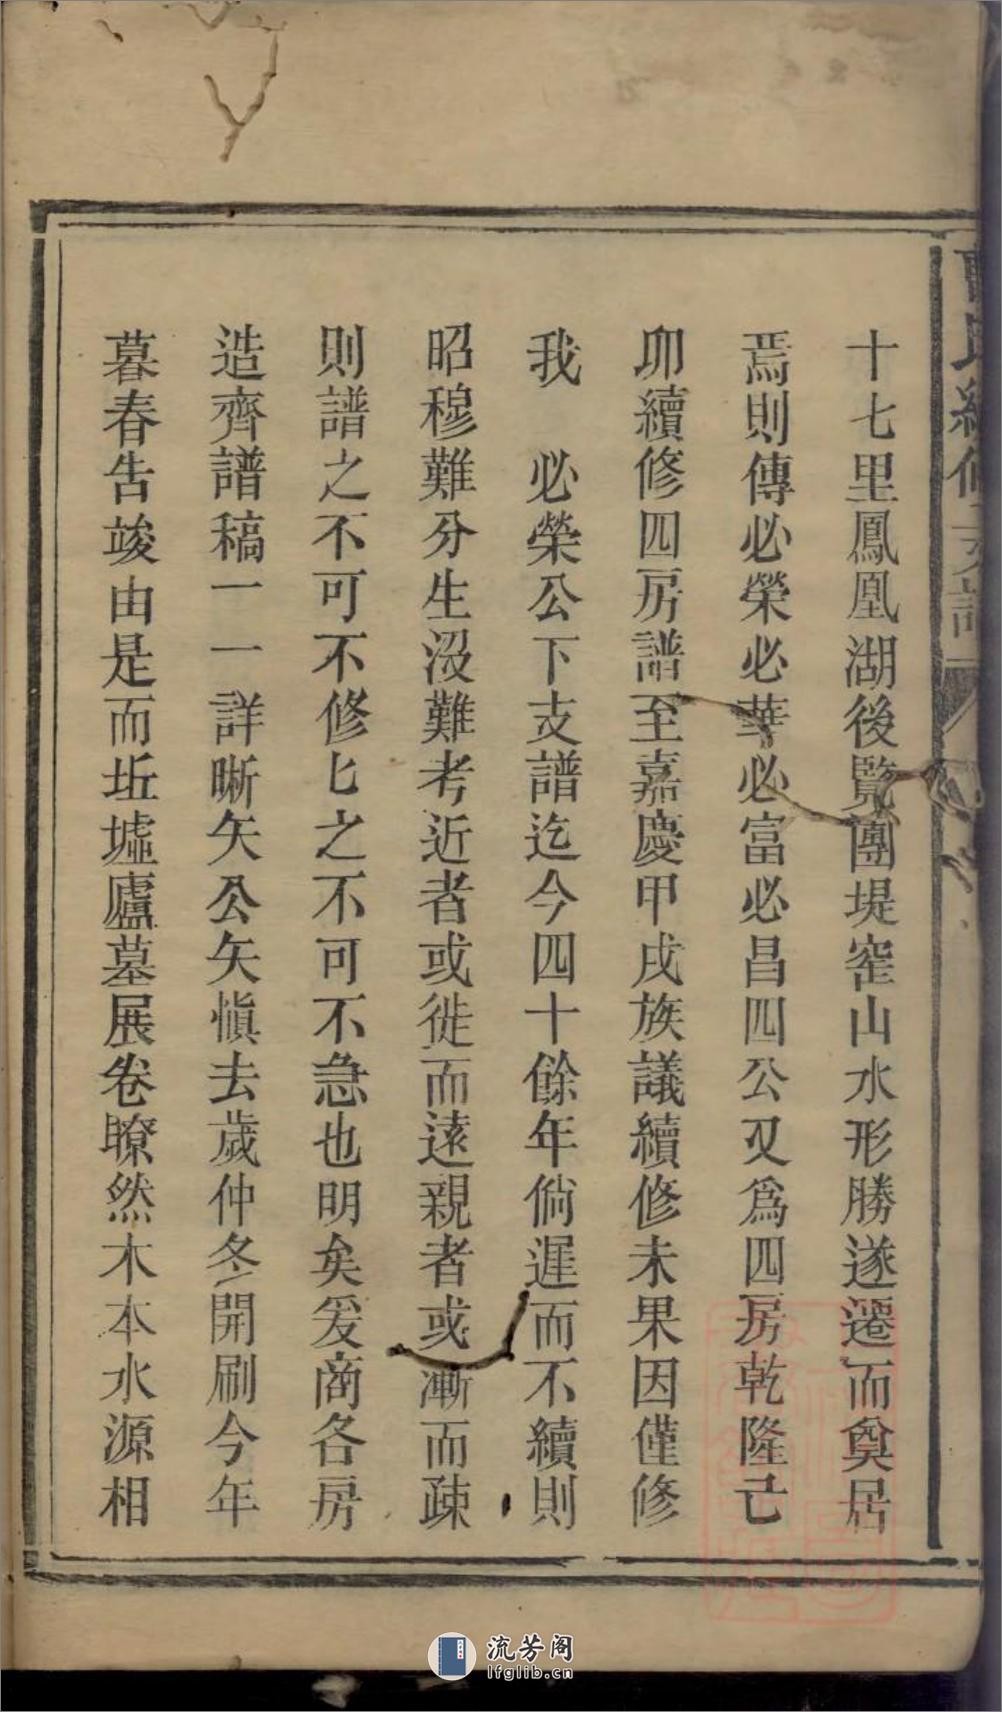 十七里鳳凰湖後覽團堤窑山水形勝遂遷而奠居
焉則傳必榮必華必富必昌四公又爲四房乾隆己
卯續修四房譜至嘉慶甲戌族議續修未果因僅修
我　必榮公下支譜迄今四十餘年倘遲而不續則
昭穆難分生沒難考近者或徙而遠親者或漸而疎
則譜之不可不修匕之不可不急也明矣爰商各房
造齊譜稿一一詳晰矢公矢慎去歲仲冬開刷今年
暮春告竣由是而坵墟廬墓展卷瞭然木本水源相
流芳阁
lfglib.cn